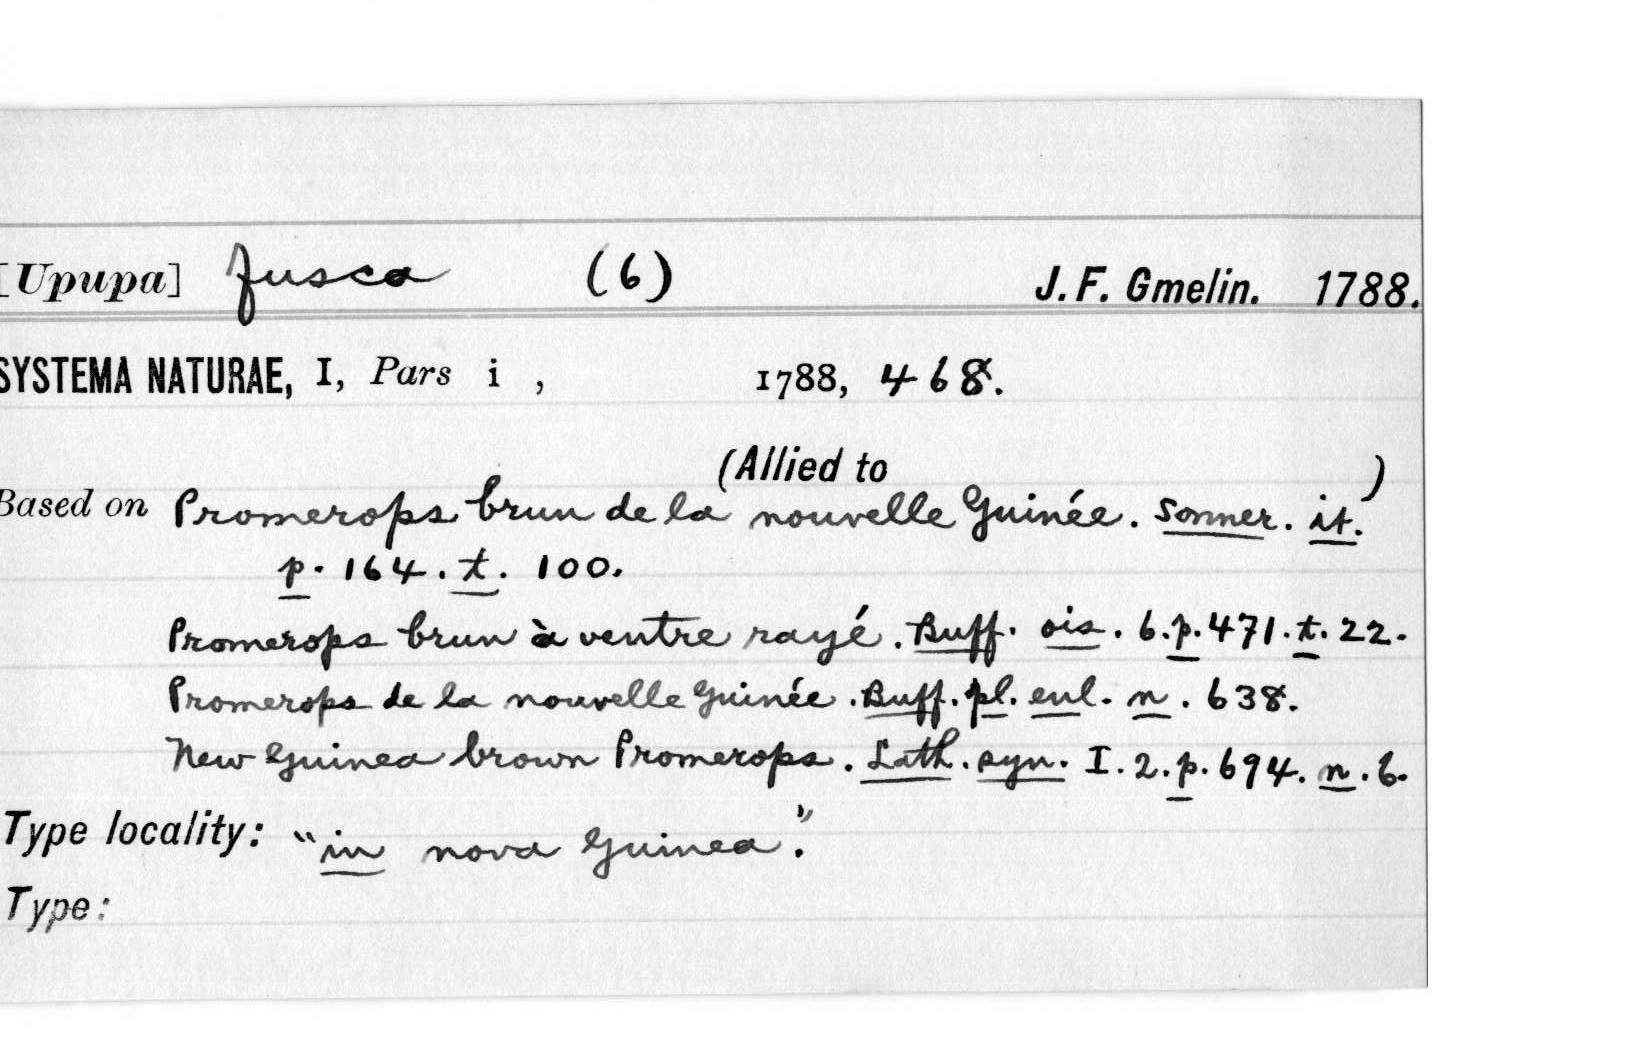 [Upupa] fusca (6) J. F. Gmelin. 1788.
SYSTEMA NATURAE, I, Pars i , 1788, 468.
(Allied to )
Based on Promerops brun de la nouvelle Guinée. Sonner. it.
p. 164. t. 100.
Promerops brun à ventre rayé. Buff. ois. 6. p. 471. t. 22.
Promerops de la nouvelle Guinée. Buff. pl. enl. n. 638.
New Guinea brown Promerops. Lath. syn. I. 2. p. 694. n. 6.
Type locality: "in nova Guinea."
Type: